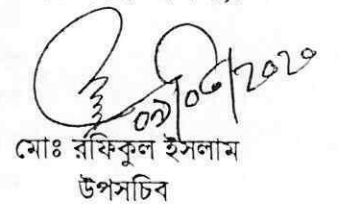 ০৯/০৮/২০২০
মোঃ রফিকুল ইসলাম
উপসচিব